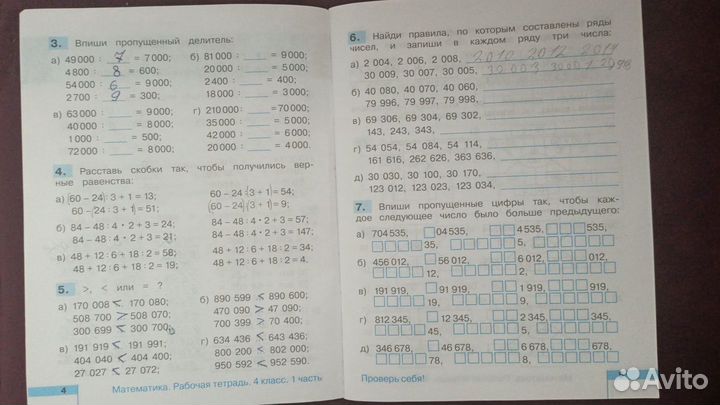 3. Впиши пропущенный делитель:
а) 49 000 : 7 = 7 000;
4 800 : 8 = 600;
54 000 : 6 = 9 000;
2 700 : 9 = 300;
б) 81 000 : ___ = 9 000;
20 000 : ___ = 5 000;
2 400 : ___ = 400;
18 000 : ___ = 3 000;
в) 63 000 : ___ = 9 000;
40 000 : ___ = 8 000;
1 000 : ___ = 500;
72 000 : ___ = 8 000;
г) 210 000 : ___ = 70 000;
35 000 : ___ = 5 000;
42 000 : ___ = 6 000;
20 000 : ___ = 4 000.
4. Расставь скобки так, чтобы получились вер-
ные равенства:
а) (60 – 24) : 3 + 1 = 13;
60 – (24 : 3 + 1) = 51;
60 – 24 : (3 + 1) = 54;
(60 – 24) : (3 + 1) = 9;
б) 84 – 48 : 4 · 2 + 3 = 24;
84 – 48 : 4 · 2 + 3 = 21;
84 – 48 : 4 · 2 + 3 = 57;
84 – 48 : 4 · 2 + 3 = 147;
в) 48 + 12 : 6 + 18 : 2 = 58;
48 + 12 : 6 + 18 : 2 = 19;
48 + 12 : 6 + 18 : 2 = 34;
48 + 12 : 6 + 18 : 2 = 4.
5. >, < или = ?
а) 170 008 < 170 080;
508 700 > 508 070;
300 699 < 300 700;
б) 890 599 < 890 600;
470 090 > 47 090;
700 399 > 70 400;
в) 191 919 < 191 991;
404 040 < 404 400;
27 027 < 27 072;
г) 634 436 < 643 436;
800 200 < 802 000;
950 592 < 952 590.
4 Математика. Рабочая тетрадь. 4 класс. 1 часть
6. Найди правила, по которым составлены ряды
чисел, и запиши в каждом ряду три числа:
а) 2 004, 2 006, 2 008, 2010 2012 2014
30 009, 30 007, 30 005, 30 003 30001
б) 40 080, 40 070, 40 060,
79 996, 79 997, 79 998,
в) 69 306, 69 304, 69 302,
143, 243, 343,
г) 54 054, 54 084, 54 114,
161 616, 262 626, 363 636,
д) 30 030, 30 100, 30 170,
123 012, 123 023, 123 034,
7. Впиши пропущенные цифры так, чтобы каж-
дое следующее число было больше предыдущего:
а) 704 535, □04 535, □□4 535, □□□535,
□□□□35, □□□□□5;
б) 456 012, □56 012, □□6 012, □□□012,
□□□□12, □□□□□2;
в) 191 919, □91 919, □□1 919, □□□919,
□□□□19, □□□□□9;
г) 812 345, □12 345, □□2 345, □□□345,
□□□□45, □□□□□5;
д) 346 678, □46 678, □□6 678, □□□678,
□□□□78, □□□□□8.
Проверь себя!
Avito